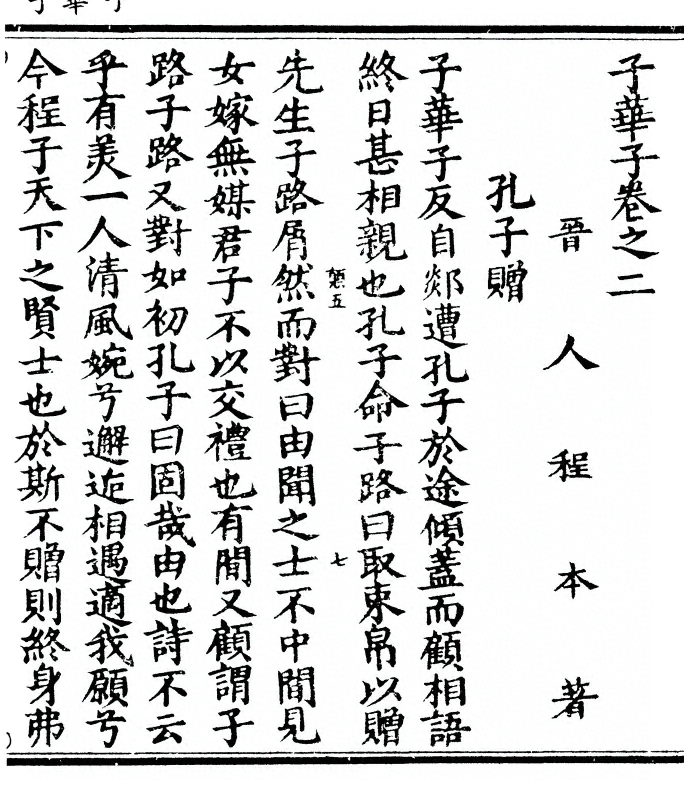 子華子卷之二
晉人程本著
孔子贈
子華子反自郯遭孔子於途傾蓋而顧相語
終日甚相親也孔子命子路曰取束帛以贈
先生子路屑然而對曰由聞之士不中閒見
女嫁無媒君子不以交禮也有閒又顧謂子
路子路又對如初孔子曰固哉由也詩不云
乎有美一人清風婉兮邂逅相遇適我願兮
今程子天下之賢士也於斯不贈則終身弗